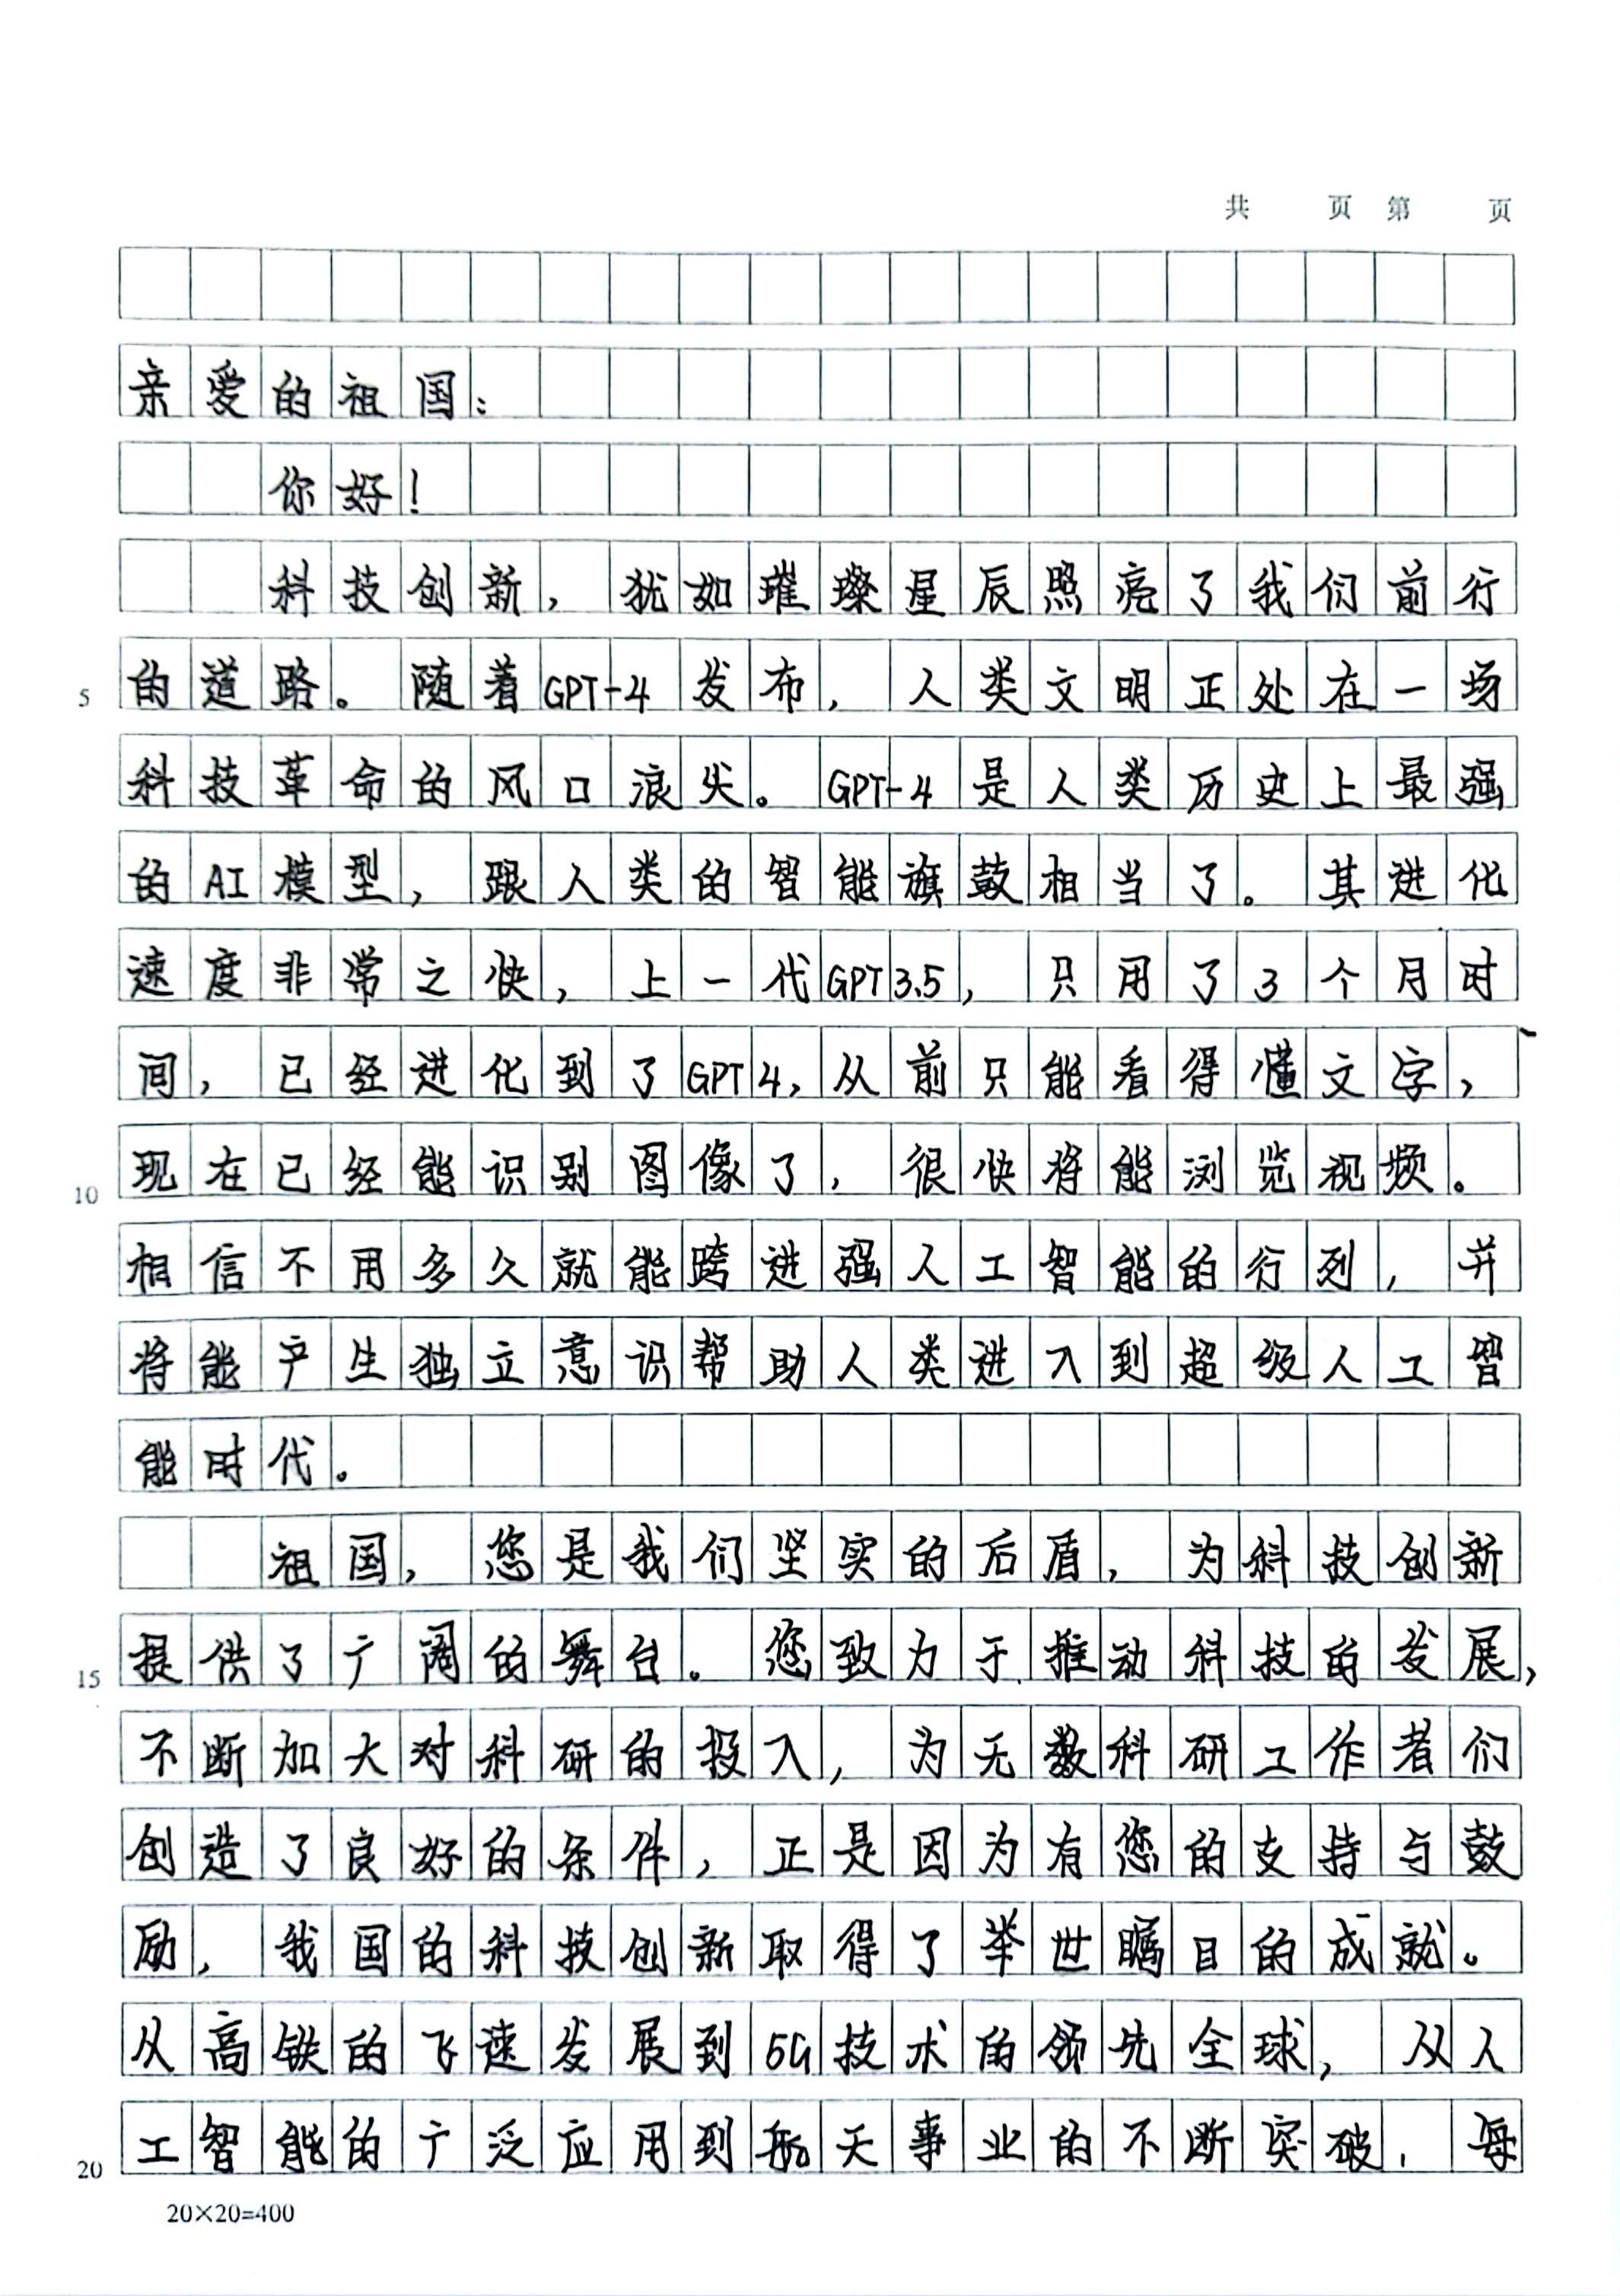 共 页 第 页
亲爱的祖国：
你好！
科技创新，犹如璀璨星辰照亮了我们前行
的道路。随着GPT-4发布，人类文明正处在一场
科技革命的风口浪尖。GPT-4是人类历史上最强
的AI模型，跟人类的智能旗鼓相当了。其进化
速度非常之快，上一代GPT3.5，只用了3个月时
间，已经进化到了GPT4，从前只能看得懂文字，
现在已经能识别图像了，很快将能浏览视频。
相信不用多久就能跨进强人工智能的行列，并
将能产生独立意识帮助人类进入到超级人工智
能时代。
祖国，您是我们坚实的后盾，为科技创新
提供了广阔的舞台。您致力于推动科技的发展，
不断加大对科研的投入，为无数科研工作者们
创造了良好的条件，正是因为有您的支持与鼓
励，我国的科技创新取得了举世瞩目的成就。
从高铁的飞速发展到5G技术的领先全球，从人
工智能的广泛应用到航天事业的不断突破，每
5
10
15
20
20×20=400